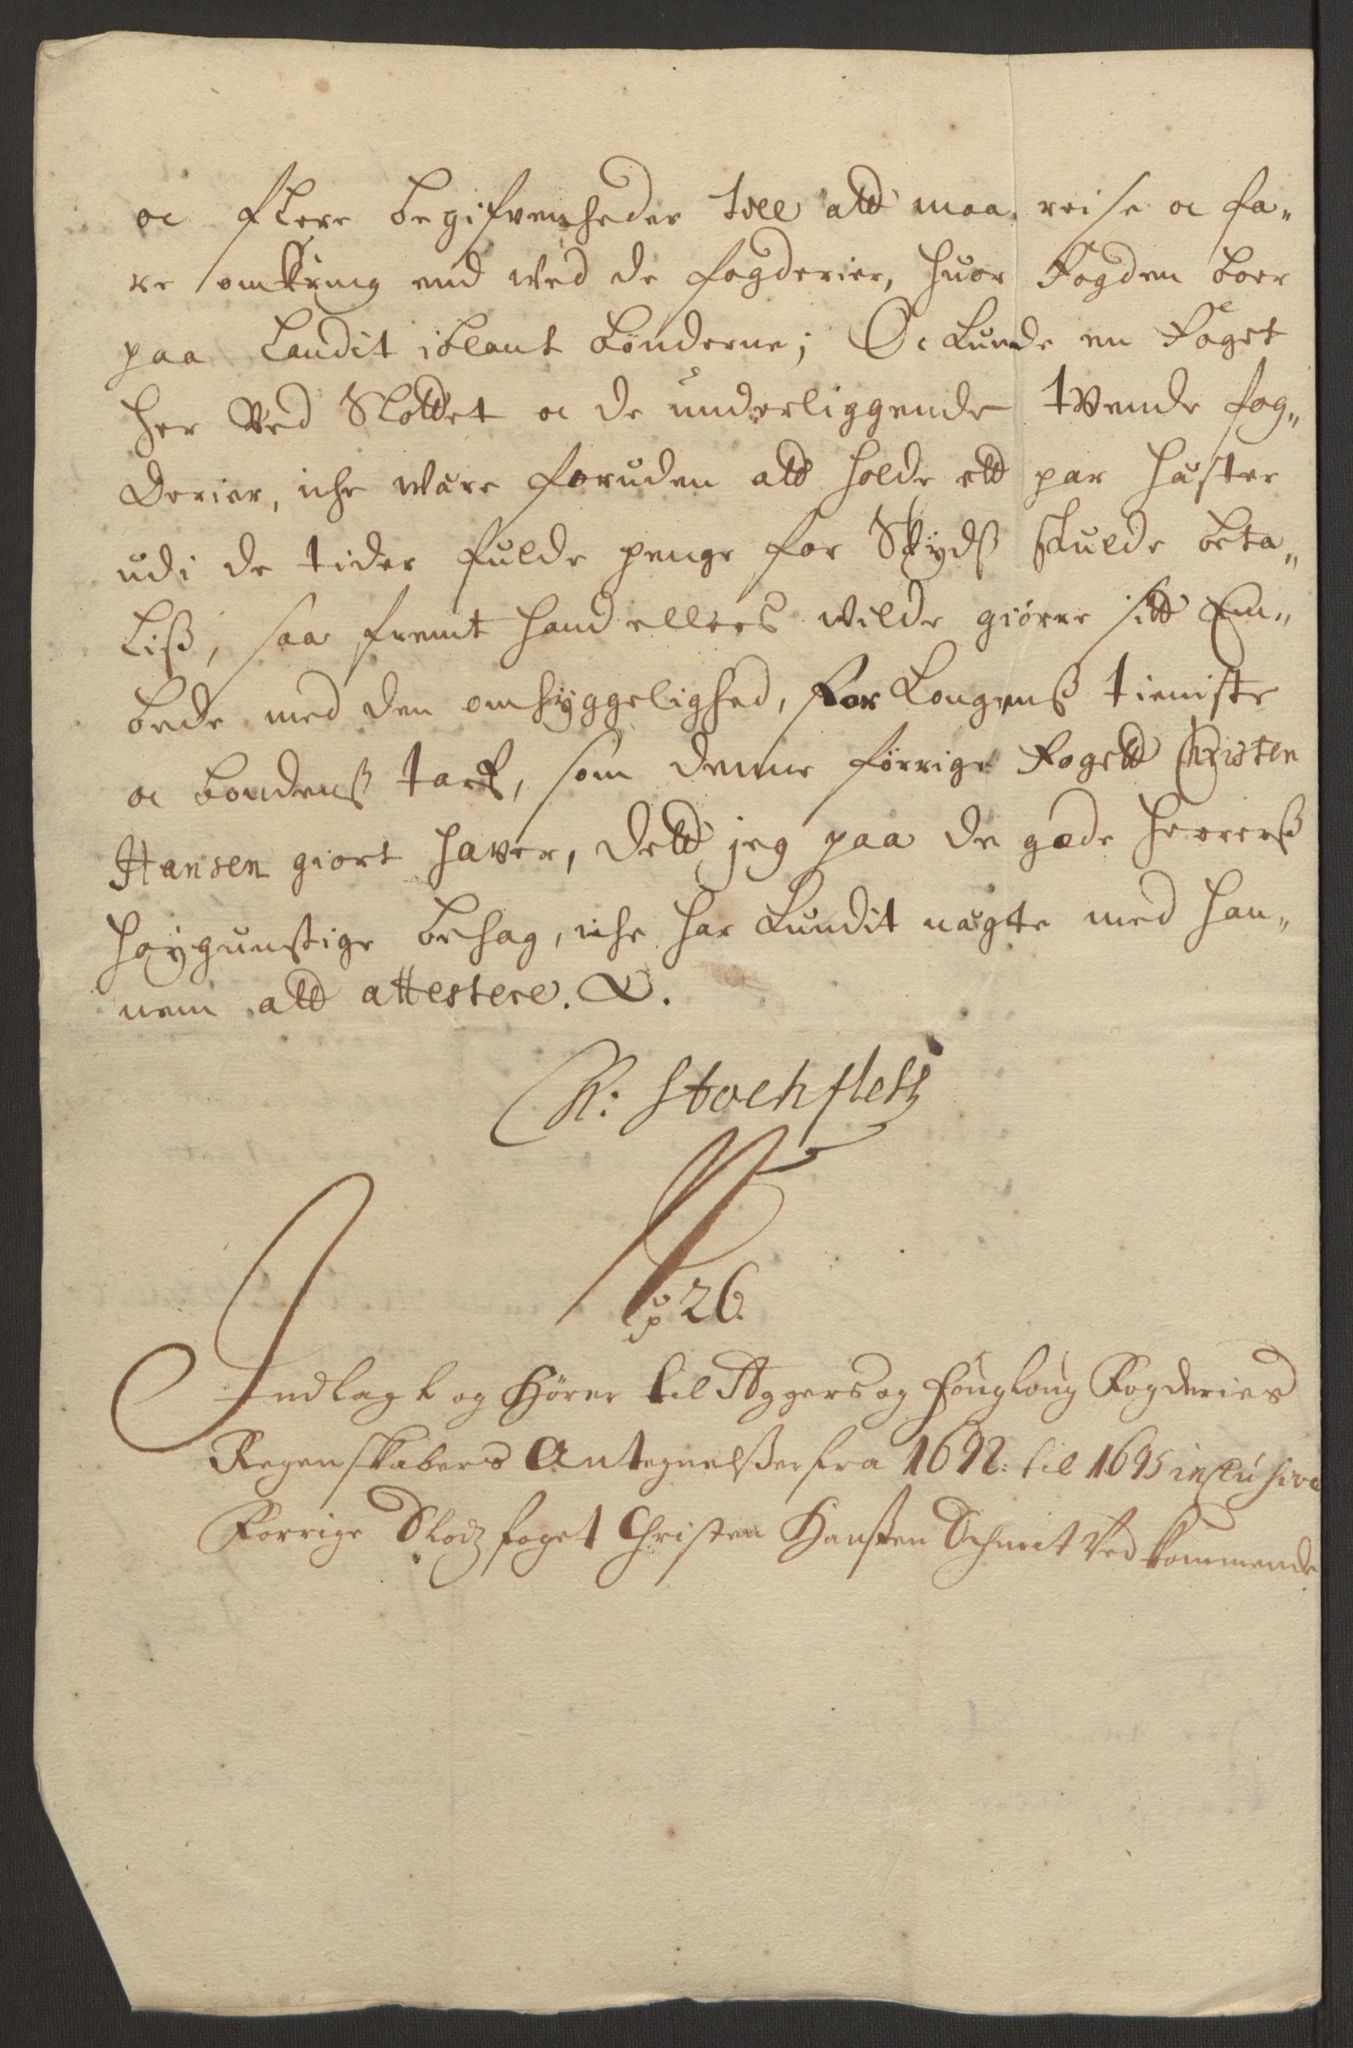 oc flere begifvenheder till att maa reise oc fa-
re omkring end ved de fogderier, huor Fogden boer
paa Landit iblant bønderne; Oc kunde en Foget
her Ved Slottet oc de underliggende tvende fog-
derier, iche være foruden att holde ett par hæster
udi de tider fulde penge for Skyds skulde beta-
lis, saa fremt hand ellers vilde giøre sitt Em-
bede med den omhyggelighed, for Kongens tieniste
oc bondens tarf, som denne forrige Fogett Christen
Hansen giort haver, dett jeg paa de gode Herrers
høygunstige behag, iche har kundit nægte med han-
nem att attestere. &.
Stochfleth
26.
Indlagt og Hører til Aggers og Folloug Fogderies
Regenskabers Antegnelsser fra 1692: til 1695 inclusive
Forrige Slodz foget Christen Hanssen Schmit Ved kommende